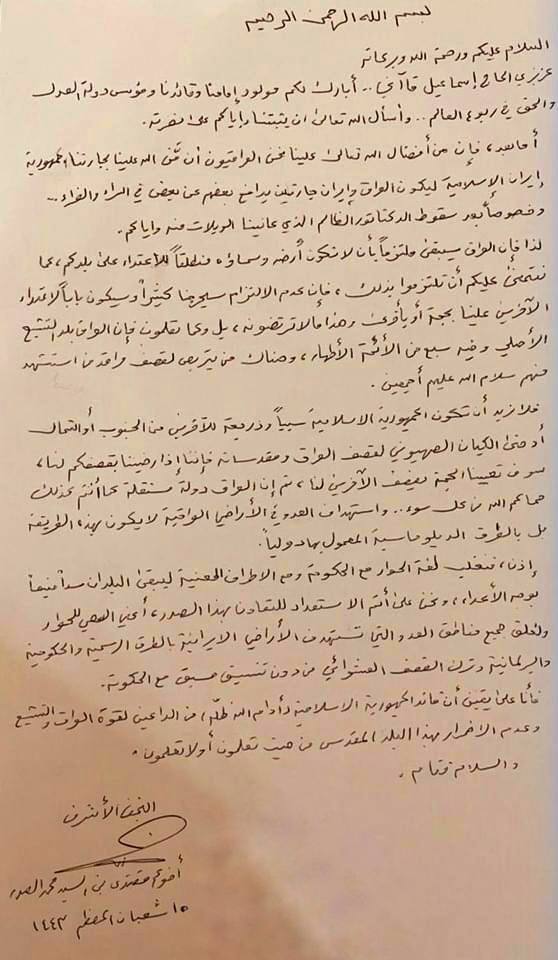 بسم الله الرحمن الرحيم
السلام عليكم ورحمة الله وبركاته
عزيزي الحاج إسماعيل قاآني .. أبارك لكم مولود إمامنا وقائدنا ومؤسس دولة العدل
والحق في ربوع العالم .. وأسأل الله تعالى ان يثبتنا وإياكم على نصرته.
أما بعد، فإن من أفضال الله تعالى علينا نحن العراقيون أن منّ الله علينا بجارتنا الجمهورية
إيران الإسلامية ليكون العراق وإيران جارتين يدافع بعضهم عن بعض في السراء والضراء ..
وخصوصاً بعد سقوط الدكتاتور الظالم الذي عانينا الويلات منه وإياكم.
لذا فإن العراق سيبقى ملتزماً بأن لا تكون أرضه وسماؤه منطلقاً للإعتداء على بلدكم، كما
نتمنى عليكم أن تلتزموا بذلك، فإن عدم الالتزام سيحرجنا كثيراً وسيكون باباً لإعتداء
الآخرين علينا بحجة أو بأخرى وهذا مالا ترتضونه، بل وكما تعلمون فإن العراق بلد التشيع
الأصلي وفيه سبع من الأئمة الأطهار، وهناك من يتربص لقصف مراقد من استشهد
منهم سلام الله عليهم أجمعين.
فلا نريد أن تكون الجمهورية الاسلامية سبباً وذريعة للآخرين من الجنوب أو الشمال
أو حتى الكيان الصهيوني لقصف العراق ومقدساته فإننا إذا رضينا بقصفكم لنا،
سوف تعيينا الحجة بقصف الآخرين لنا، ثم إن العراق دولة مستقلة كما أنتم كذلك
حماكم الله من كل سوء .. واستهداف العدو في الأراضي العراقية لا يكون بهذه الطريقة
بل بالطرق الدبلوماسية المعمول بها دولياً.
إذن، فنغلب لغة الحوار مع الحكومة ومع الاطراف المعنية ليبقى البلدان سداً منيعاً
بوجه الأعداء، ونحن على أتم الاستعداد للتعاون بهذا الصدد، أعني السعي للحوار
ولغلق جميع مناطق العدو التي تستهدف الأراضي الايرانية بالطرق الرسمية والحكومية
والبرلمانية وترك القصف العشوائي من دون تنسيق مسبق مع الحكومة.
فأنا على يقين أن قائد الجمهورية الاسلامية (أدام الله ظله) من الداعين لقوة العراق والتشيع
وعدم الاضرار بهذا البلد المقدس من حيث تعلمون أو لا تعلمون.
والسلام ختام.
النجف الأشرف
أخوكم مقتدى بن السيد محمد الصدر
١٥ شعبان المعظم ١٤٤٣